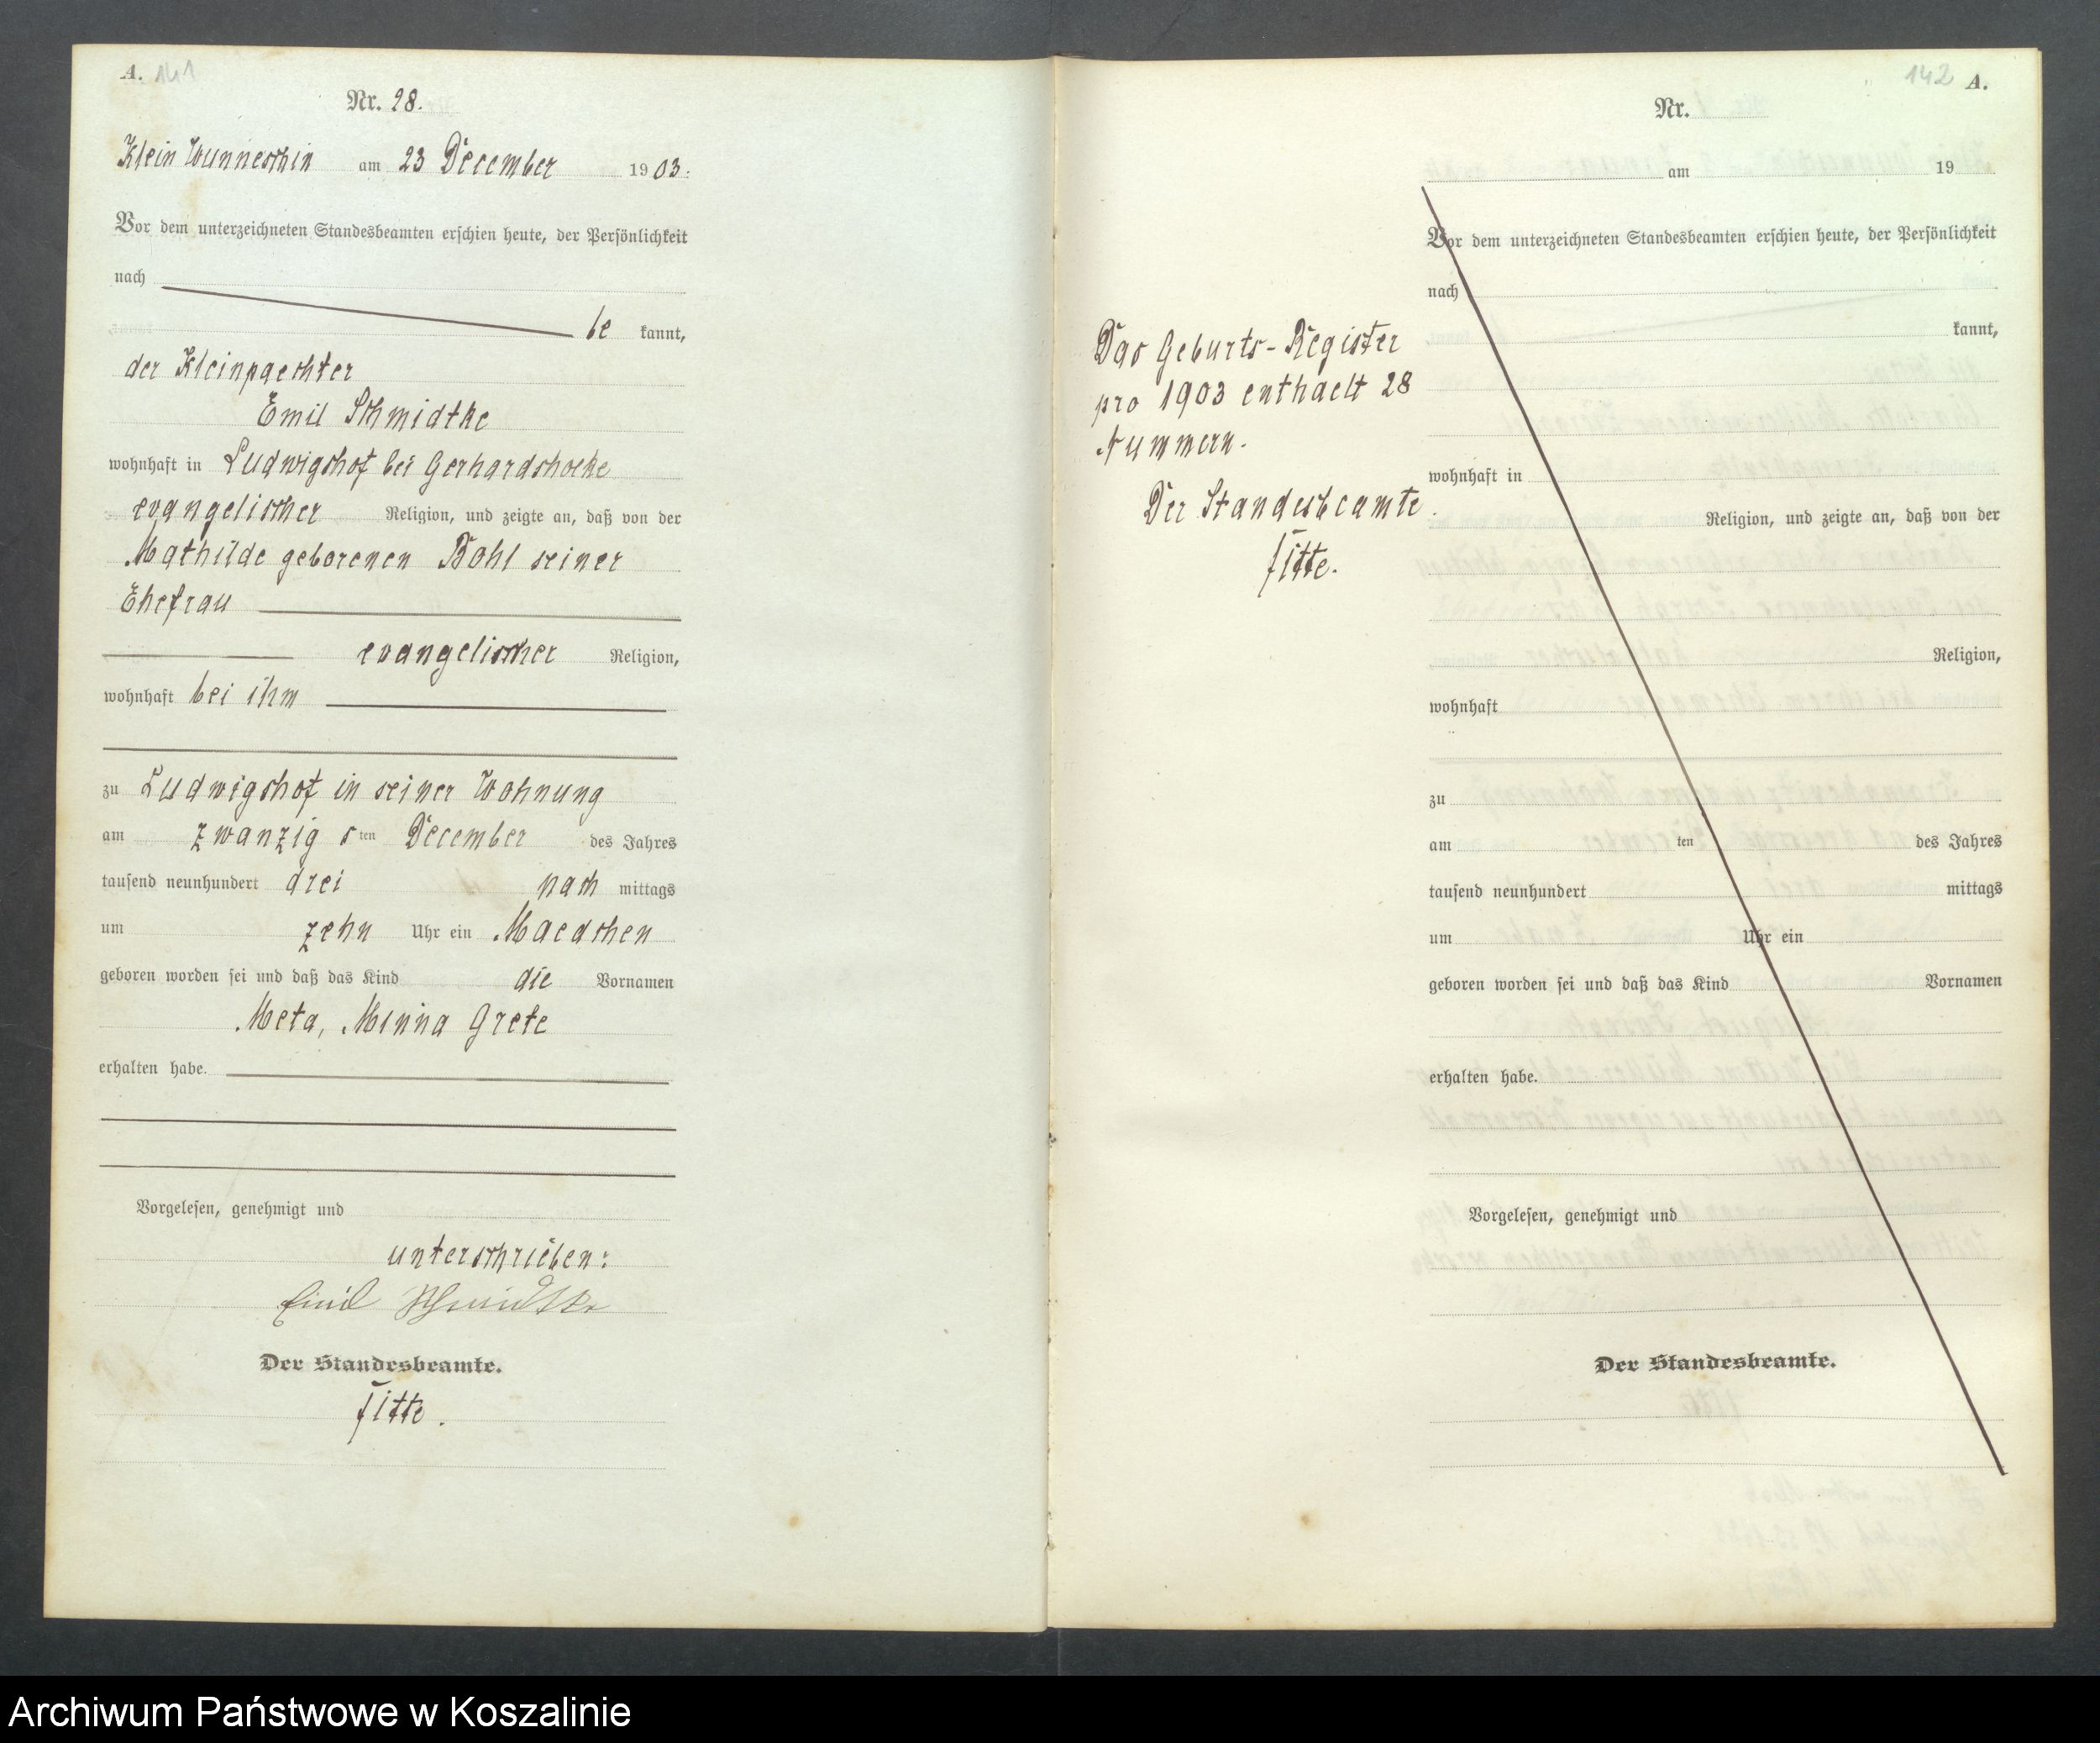 A. 141
Nr. 28.
Klein Wunneschin am 23 December 1903.
Vor dem unterzeichneten Standesbeamten erschien heute, der Persönlichkeit
nach
be kannt,
der Kleinpaechter
Emil Schmidtke
wohnhaft in Ludwigshof bei Gerhardshoehe
evangelischer Religion, und zeigte an, daß von der
Mathilde geborenen Bohl seiner
Ehefrau
evangelischer Religion,
wohnhaft bei ihm
zu Ludwigshof in seiner Wohnung
am zwanzig sten December des Jahres
tausend neunhundert drei nach mittags
um zehn Uhr ein Maedchen
geboren worden sei und daß das Kind die Vornamen
Meta, Minna Grete
erhalten habe.
Vorgelesen, genehmigt und
unterschrieben:
Emil Schmidtke
Der Standesbeamte.
Fitte.
142 A.
Nr.
am 19
Vor dem unterzeichneten Standesbeamten erschien heute, der Persönlichkeit
nach
kannt,
Das Geburts-Register
pro 1903 enthaelt 28
Nummern.
Der Standesbeamte.
Fitte.
wohnhaft in
Religion, und zeigte an, daß von der
Religion,
wohnhaft
zu
am ten des Jahres
tausend neunhundert mittags
um Uhr ein
geboren worden sei und daß das Kind Vornamen
erhalten habe.
Vorgelesen, genehmigt und
Der Standesbeamte.
Archiwum Państwowe w Koszalinie